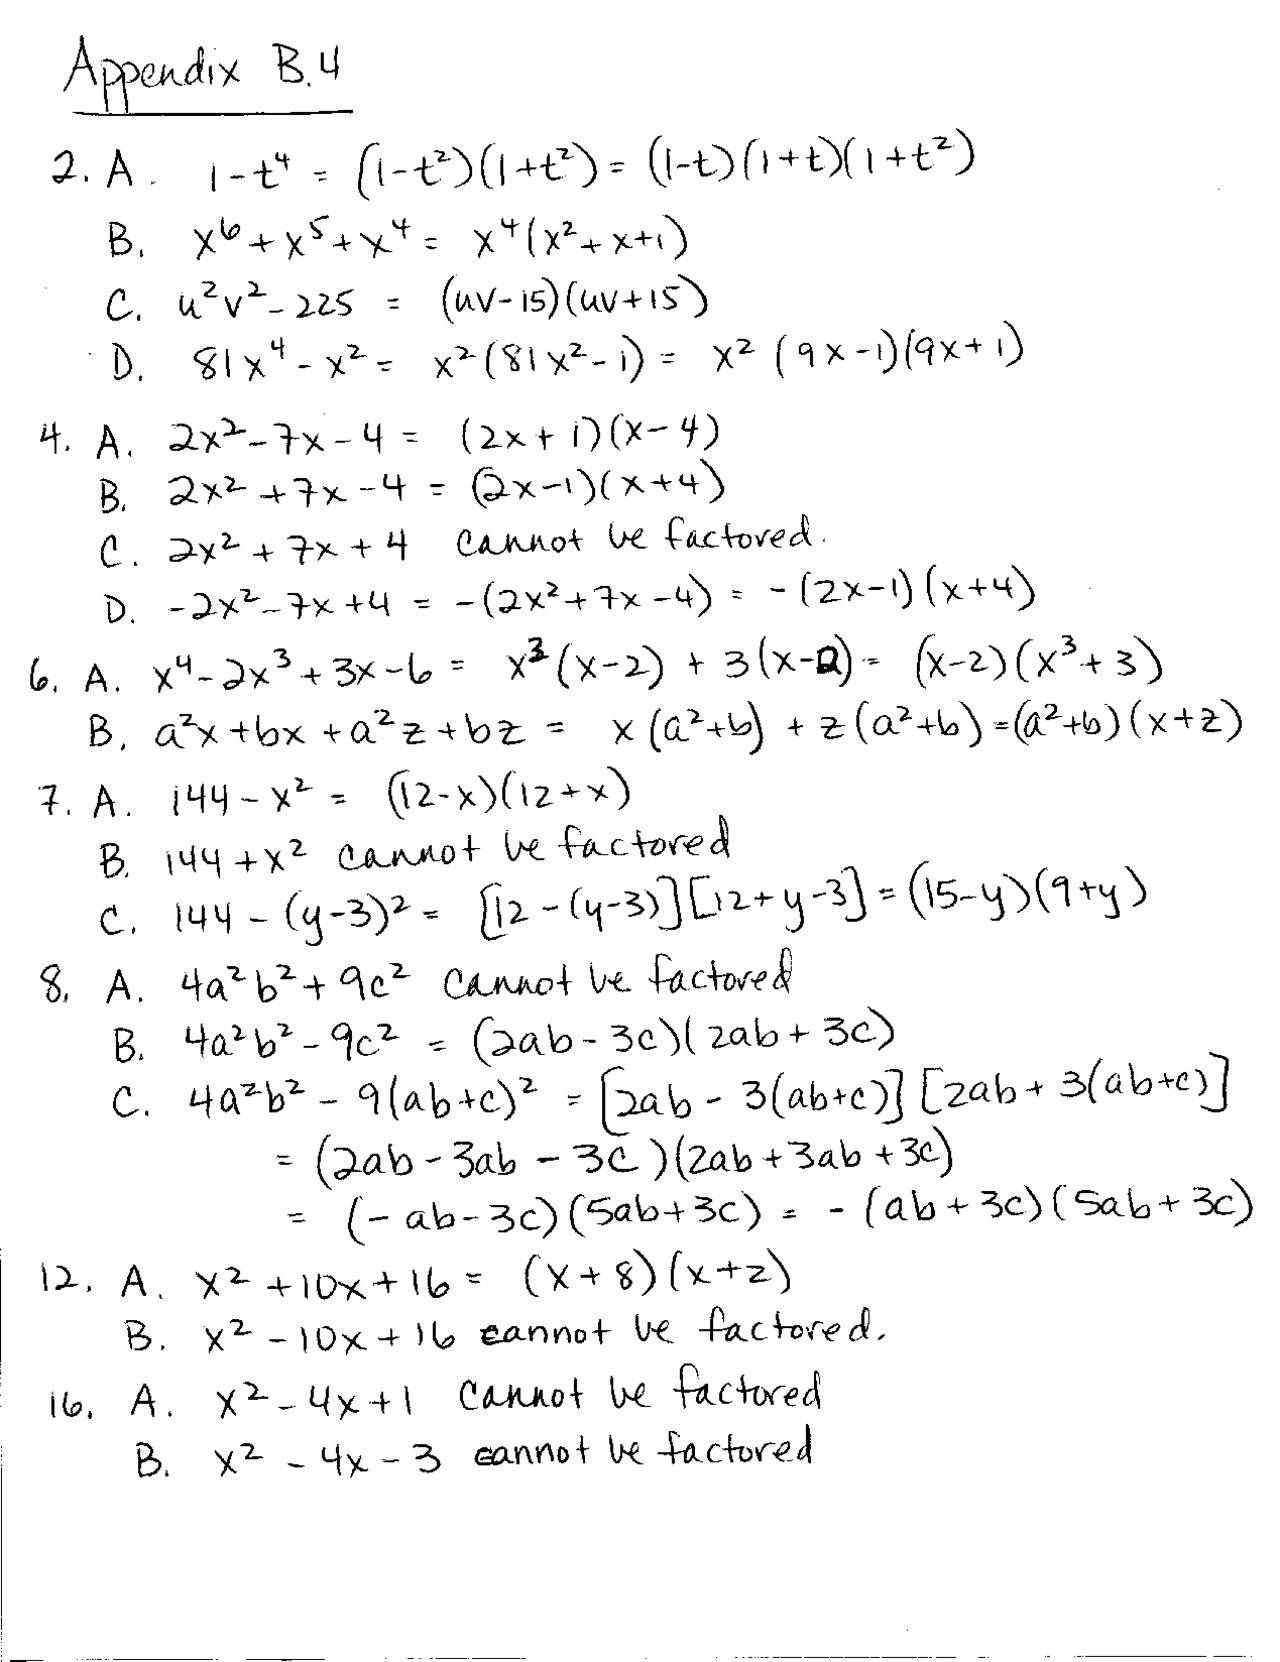 Appendix B.4
2. A. 1-t⁴ = (1-t²)(1+t²) = (1-t)(1+t)(1+t²)
B. x⁶+x⁵+x⁴ = x⁴(x²+x+1)
C. u²v²-225 = (uv-15)(uv+15)
D. 81x⁴-x² = x²(81x²-1) = x²(9x-1)(9x+1)
4. A. 2x²-7x-4 = (2x+1)(x-4)
B. 2x²+7x-4 = (2x-1)(x+4)
C. 2x²+7x+4 cannot be factored.
D. -2x²-7x+4 = -(2x²+7x-4) = -(2x-1)(x+4)
6. A. x⁴-2x³+3x-6 = x³(x-2)+3(x-2) = (x-2)(x³+3)
B. a²x+bx+a²z+bz = x(a²+b)+z(a²+b)=(a²+b)(x+z)
7. A. 144-x² = (12-x)(12+x)
B. 144+x² cannot be factored
C. 144-(y-3)² = [12-(y-3)][12+y-3] = (15-y)(9+y)
8. A. 4a²b²+9c² cannot be factored
B. 4a²b²-9c² = (2ab-3c)(2ab+3c)
C. 4a²b²-9(ab+c)² = [2ab-3(ab+c)][2ab+3(ab+c)]
= (2ab-3ab-3c)(2ab+3ab+3c)
= (-ab-3c)(5ab+3c) = -(ab+3c)(5ab+3c)
12. A. x²+10x+16 = (x+8)(x+2)
B. x²-10x+16 cannot be factored.
16. A. x²-4x+1 cannot be factored
B. x²-4x-3 cannot be factored